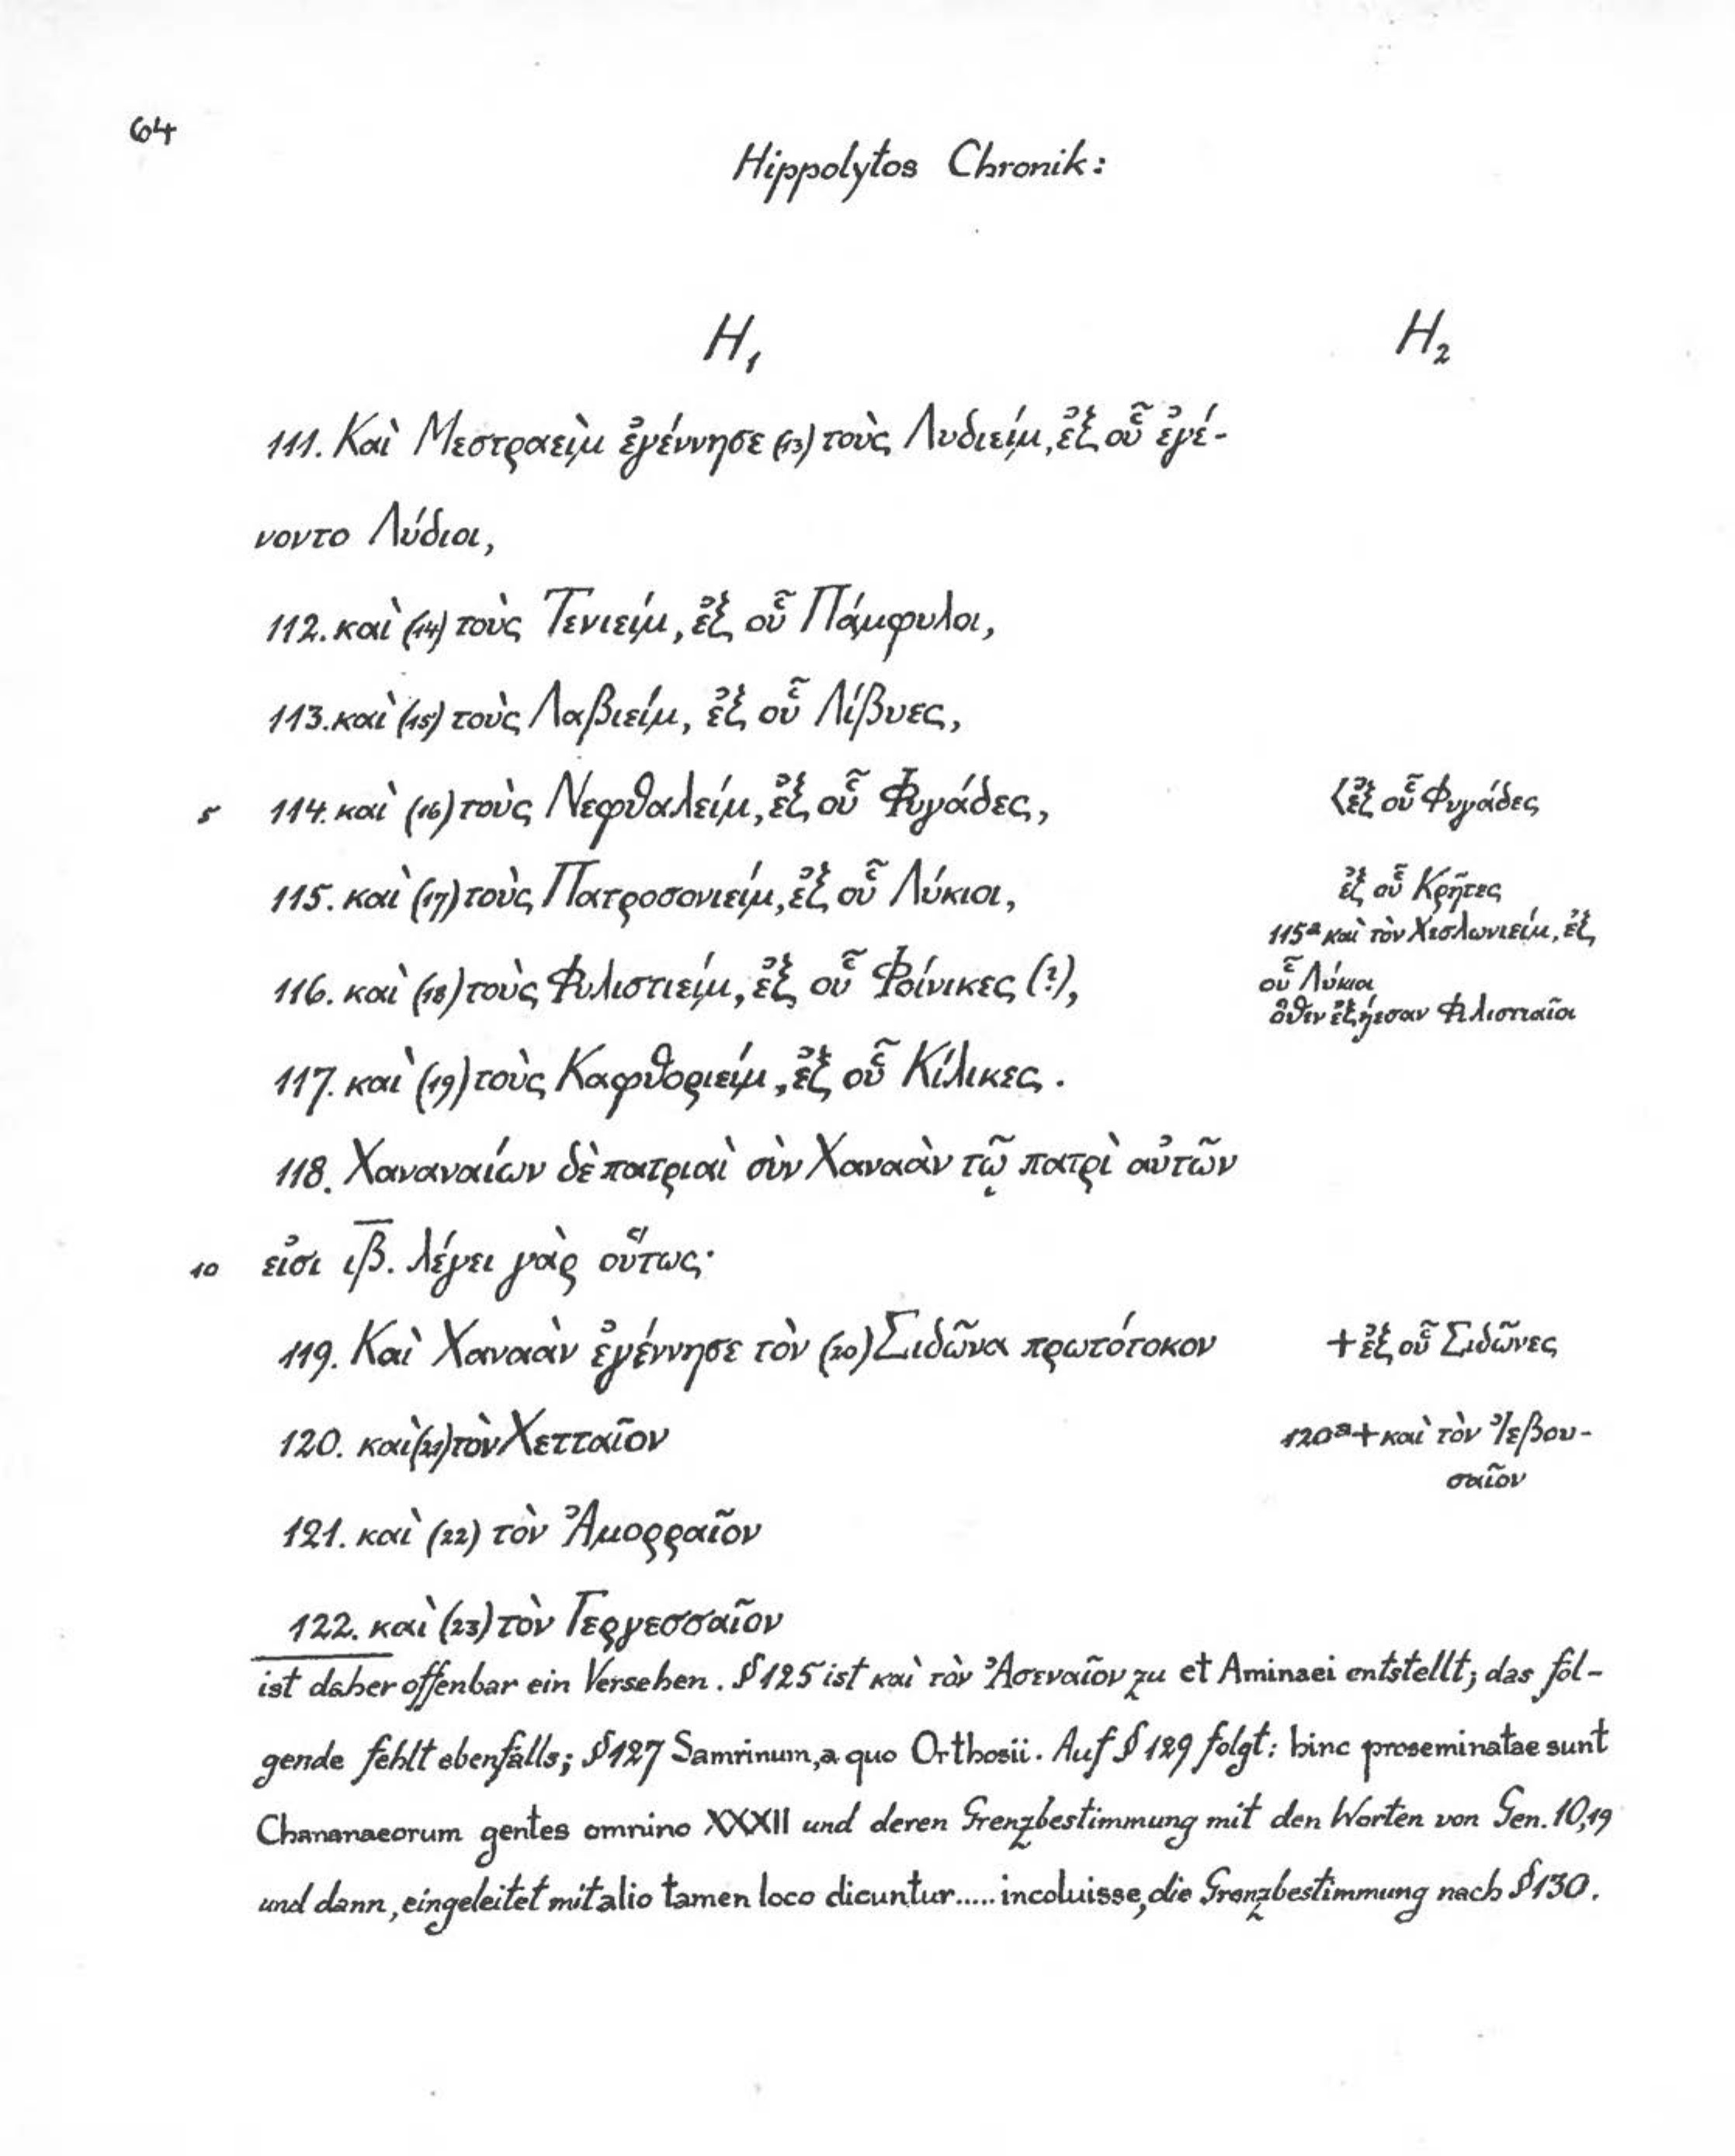 64
Hippolytos Chronik:
H₁
H₂
111. Καὶ Μεστραεὶμ ἐγέννησε (13) τοὺς Λυδιείμ, ἐξ οὗ ἐγέ-
νοντο Λύδιοι,
112. καὶ (14) τοὺς Τενιείμ, ἐξ οὗ Πάμφυλοι,
113. καὶ (15) τοὺς Λαβιείμ, ἐξ οὗ Λίβυες,
5 114. καὶ (16) τοὺς Νεφθαλείμ, ἐξ οὗ Φυγάδες,
⟨ἐξ οὗ Φυγάδες
115. καὶ (17) τοὺς Πατροσονιείμ, ἐξ οὗ Λύκιοι,
ἐξ οὗ Κρῆτες
115a καὶ τὸν Χεσλωνιείμ, ἐξ
οὗ Λύκιοι
116. καὶ (18) τοὺς Φυλιστιείμ, ἐξ οὗ Φοίνικες (?),
ὅθεν ἐξῄεσαν Φιλιστιαῖοι
117. καὶ (19) τοὺς Καφθοριείμ, ἐξ οὗ Κίλικες.
118. Χαναναίων δὲ πατριαὶ σὺν Χαναὰν τῷ πατρὶ αὐτῶν
10 εἰσι ιβ̅. λέγει γὰρ οὕτως·
119. Καὶ Χαναὰν ἐγέννησε τὸν (20) Σιδῶνα πρωτότοκον
+ ἐξ οὗ Σιδῶνες
120. καὶ (21) τὸν Χετταῖον
120a + καὶ τὸν Ἰεβου-
σαῖον
121. καὶ (22) τὸν Ἀμορραῖον
122. καὶ (23) τὸν Γεργεσσαῖον
ist daher offenbar ein Versehen. § 125 ist καὶ τὸν Ἀσεναῖον zu et Aminaei entstellt; das fol-
gende fehlt ebenfalls; § 127 Samrinum, a quo Orthosii. Auf § 129 folgt: hinc proseminatae sunt
Chananaeorum gentes omnino XXXII und deren Grenzbestimmung mit den Worten von Gen. 10,19
und dann, eingeleitet mit alio tamen loco dicuntur..... incoluisse, die Grenzbestimmung nach § 130.